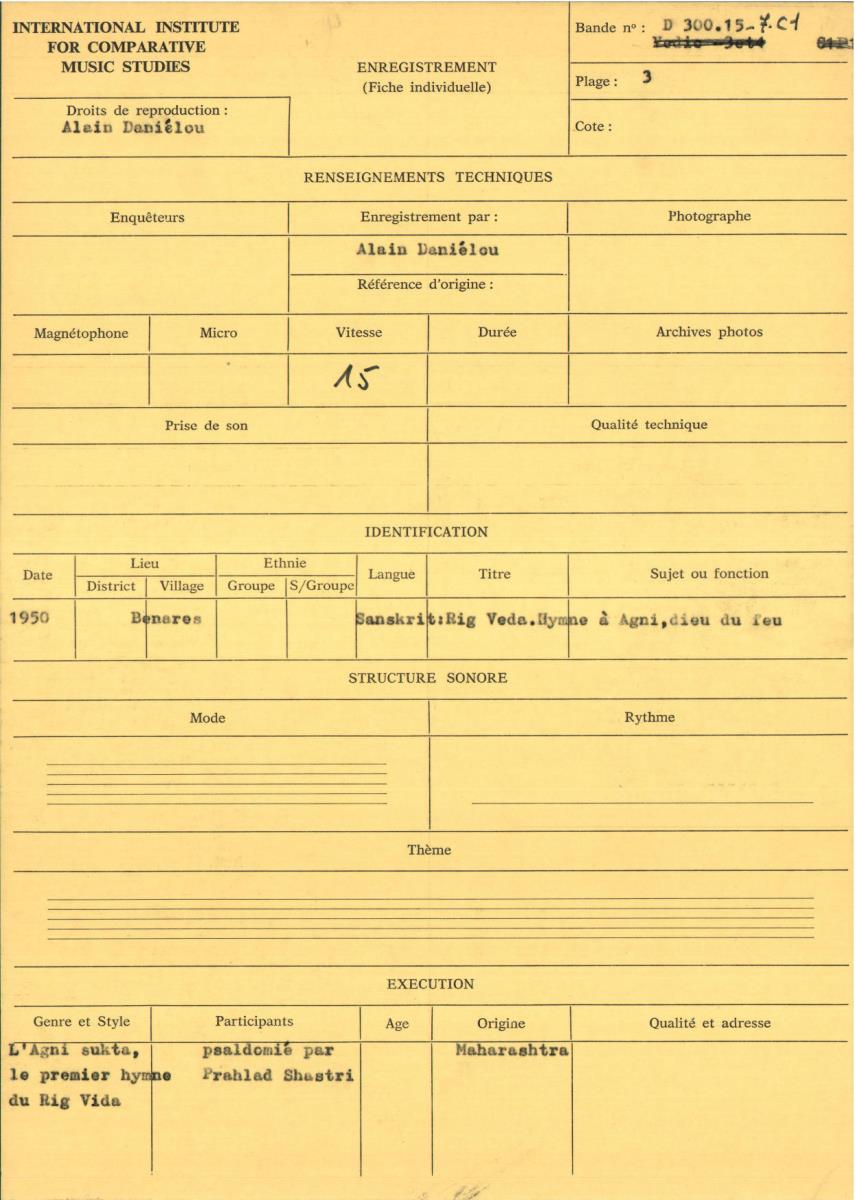 INTERNATIONAL INSTITUTE
FOR COMPARATIVE
MUSIC STUDIES
Droits de reproduction :
Alain Daniélou
ENREGISTREMENT
(Fiche individuelle)
Bande nº : D 300.15-7.C1
Plage : 3
Cote :
RENSEIGNEMENTS TECHNIQUES
Enquêteurs
Enregistrement par :
Photographe
Alain Daniélou
Référence d'origine :
Magnétophone
Micro
Vitesse
Durée
Archives photos
15
Prise de son
Qualité technique
IDENTIFICATION
Date
Lieu
District
Village
Ethnie
Groupe
S/Groupe
Langue
Titre
Sujet ou fonction
1950
Benares
Sanskrit:Rig Veda.Hymne à Agni,dieu du feu
STRUCTURE SONORE
Mode
Rythme
Thème
EXECUTION
Genre et Style
Participants
Age
Origine
Qualité et adresse
L'Agni sukta,
le premier hymne
du Rig Vida
psaldomié par
Prahlad Shastri
Maharashtra